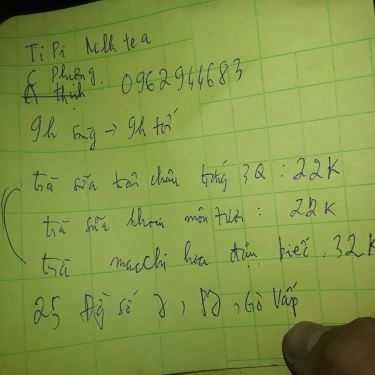 TiPi Milk tea
C Phương.
A thịnh 0962944683
9h sáng → 9h tối
trà sữa trân châu trắng 3Q : 22K
trà sữa khoai môn tươi : 22K
trà macchi hoa đậu biếc . 32K
25 số 7, , Gò Vấp